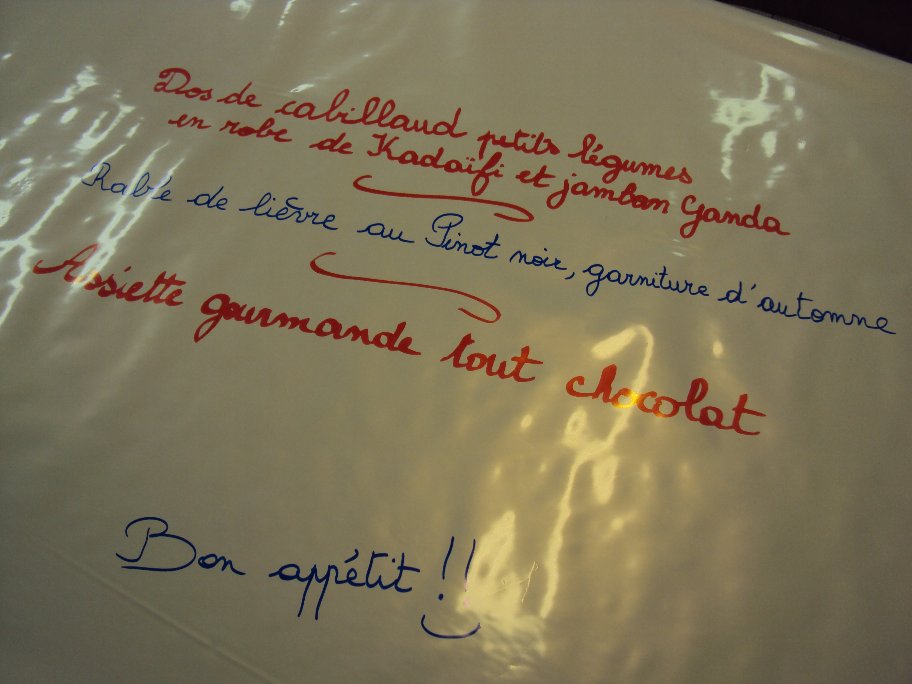 Dos de cabillaud petits légumes
en robe de Kadaïfi et jambon Ganda
Rablé de lièvre au Pinot noir, garniture d'automne
Assiette gourmande tout chocolat
Bon appétit !!